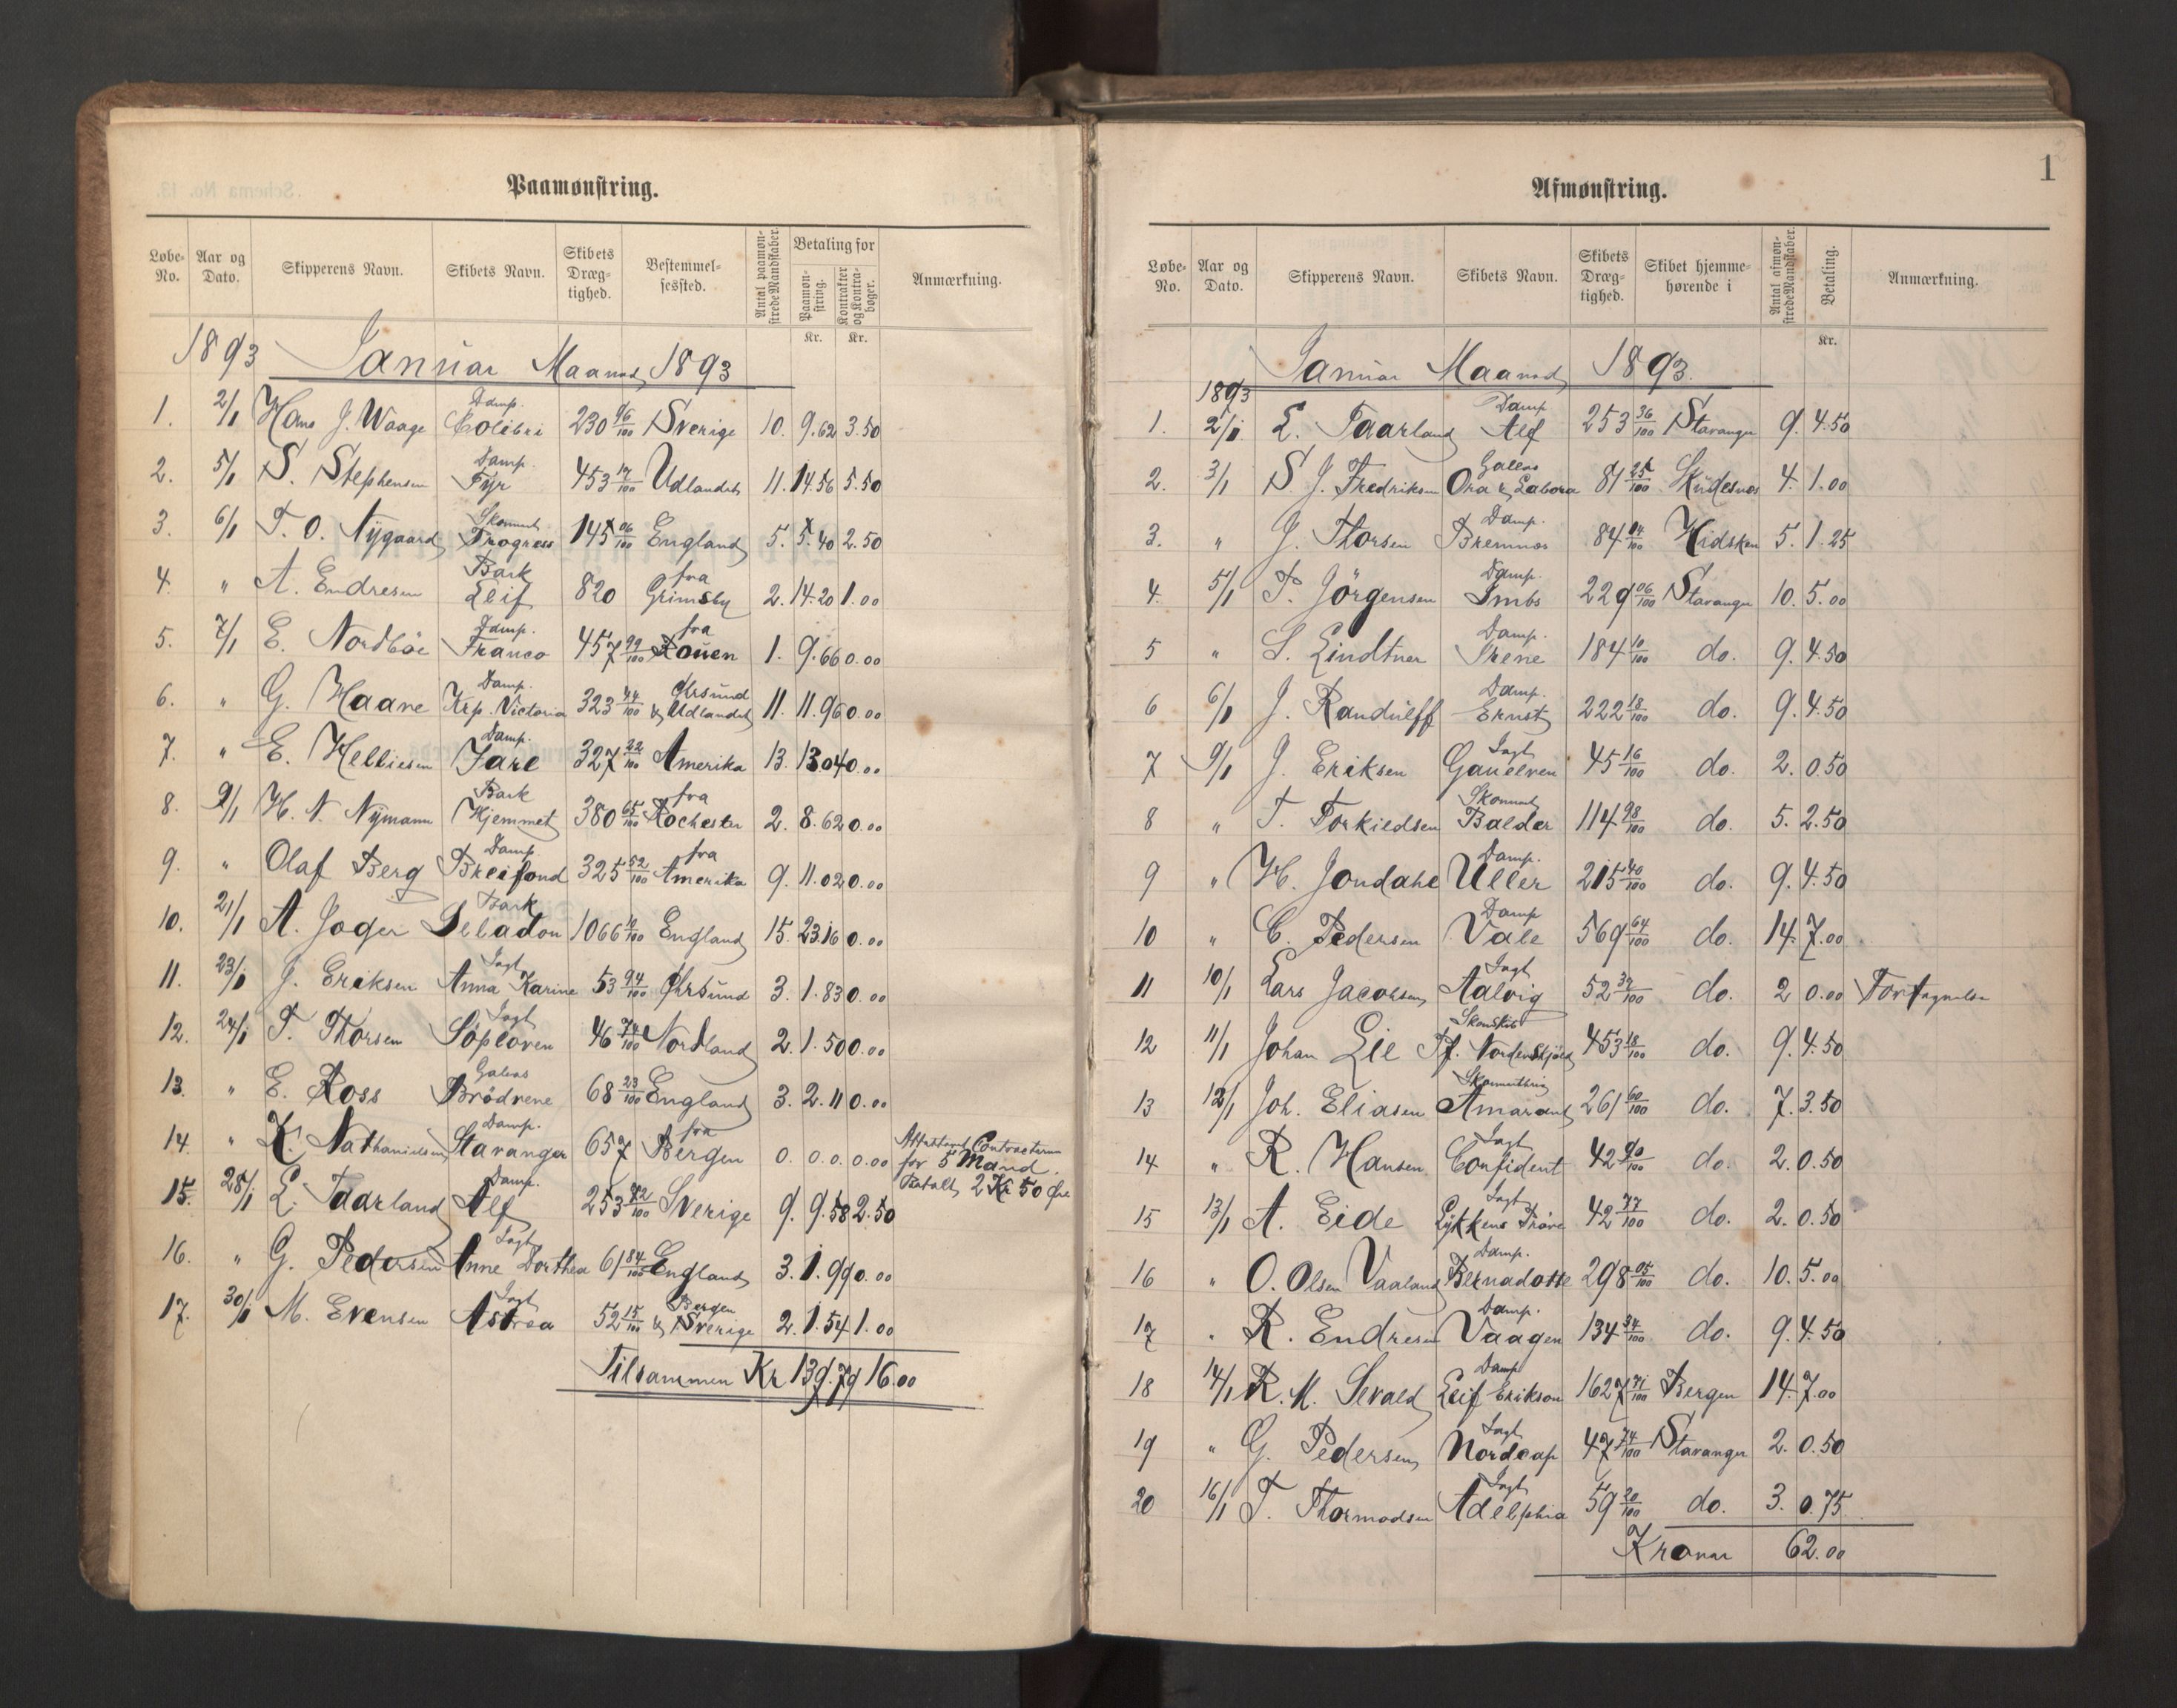 Paamønstring.
Løbe-No. Aar og Dato. Skipperens Navn. Skibets Navn. Skibets Dræg-tighed. Bestemmel-sessted. Antal paamøn-strede Mandskaber. Betaling for Paamøn-string. Kontrakter og Kontra-bøger. Anmærkning.
Kr. Kr.
1893 Januar Maaned 1893
1. 2/1 Hans J. Waage Damp. Colibri 230 96/100 Sverige 10. 9.62 3.50
2. 5/1 S. Stephensen Damp. Fyr 453 17/100 Udlandet 11. 14.56 5.50
3. 6/1 T. O. Nÿgaard Skonnert Progress 145 06/100 England 5. 5.40 2.50
4. " A. Endresen Bark Leif 820 fra Grimsby 2. 14.20 1.00
5. 7/1 E. Nordböe Damp. Franco 457 99/100 fra Rouen 1. 9.66 0.00
6. " G. Haave Damp. Krp. Victoria 323 44/100 Chrsund & Udlandet 11. 11.96 0.00
7. " E. Helliesen Damp. Jarl 327 22/100 Amerika 13. 13.04 0.00
8. 9/1 H. N. Nÿmann Bark Hjemmet 380 65/100 fra Rochester 2. 8.62 0.00
9. " Olaf Berg Damp. Breifond 325 52/100 fra Amerika 9. 11.02 0.00
10. 21/1 A. Joger Bark Seladon 1066 10/100 England 15. 23.16 0.00
11. 23/1 J. Eriksen Jagt Anna Karine 53 94/100 Chrsund 3. 1.83 0.00
12. 24/1 T. Thorsen Jagt Söploven 46 74/100 Nordland 2. 1.50 0.00
13. " E. Ross Galeas Brödrene 68 23/100 England 3. 2.11 0.00
14. " K. Nathanielsen Damp. Stavanger 657 fra Bergen 0. 0.0. 0.00 Contracterne for 5 Mand. Betalt 2 Kr 50 Øre
15. 28/1 L. Taarland Damp. Alf 253 72/100 Sverige 9. 9.58 2.50
16. " G. Pedersen Jagt Anne Dorthea 61 84/100 England 3. 1.99 0.00
17. 30/1 M. Evensen Jagt Astrea 52 15/100 Bergen & Sverige 2. 1.54 1.00
Tilsammen Kr 139.79 16.00
1
Afmønstring.
Løbe-No. Aar og Dato. Skipperens Navn. Skibets Navn. Skibets Dræg-tighed. Skibet hjemme-hørende i Antal afmøn-strede Mandskaber. Betaling. Anmærkning.
Kr.
Januar Maaned 1893.
1893
1. 2/1 L. Taarland Damp Alf 253 36/100 Stavanger 9. 4.50
2. 3/1 S. J. Fredriksen Galeas Ora & Labora 81 25/100 Skudesnes 4. 1.00
3. " J. Thorsen Damp. Bremnes 84 04/100 Hidsken 5. 1.25
4. 5/1 P. Jörgensen Damp. Imbs 229 06/100 Stavanger 10. 5.00
5 " S. Lindtner Damp. Irene 184 10/100 do. 9. 4.50
6 6/1 J. Randulff Damp. Ernst 222 18/100 do. 9. 4.50
7 9/1 J. Eriksen Jagt Gauelven 45 16/100 do. 2. 0.50
8 " T. Torkildsen Skonnert Balder 114 98/100 do. 5. 2.50
9 " H. Jondahl Damp. Uller 215 40/100 do. 9. 4.50
10 " C. Pedersen Damp Vale 569 64/100 do. 14. 7.00
11 10/1 Lars Jacobsen Jagt Aalvig 52 39/100 do. 2 0.00
12 11/1 Johan Lie Pf. Nordenskjöld 453 18/100 do. 9. 4.50
13 12/1 Joh. Eliasen Skonnertbrig Amarant 261 60/100 do. 7. 3.50
14 " R. Hansen Jagt Confident 42 90/100 do. 2. 0.50
15 13/1 A. Eide Jagt Lÿkkens Pröve 42 77/100 do. 2. 0.50
16 " O. Olsen Vaaland Damp. Bernadotte 298 05/100 do. 10. 5.00
17 " R. Endresen Damp. Vaagen 134 34/100 do. 9. 4.50
18 14/1 R. M. Sevald Damp Leif Erikson 1627 71/100 Bergen 14. 7.00
19 " G. Pedersen Jagt Nordcap 47 74/100 Stavanger 2. 0.50
20 16/1 T. Thormodsen Jagt Adelphia 59 20/100 do. 3. 0.75
Kroner 62.00